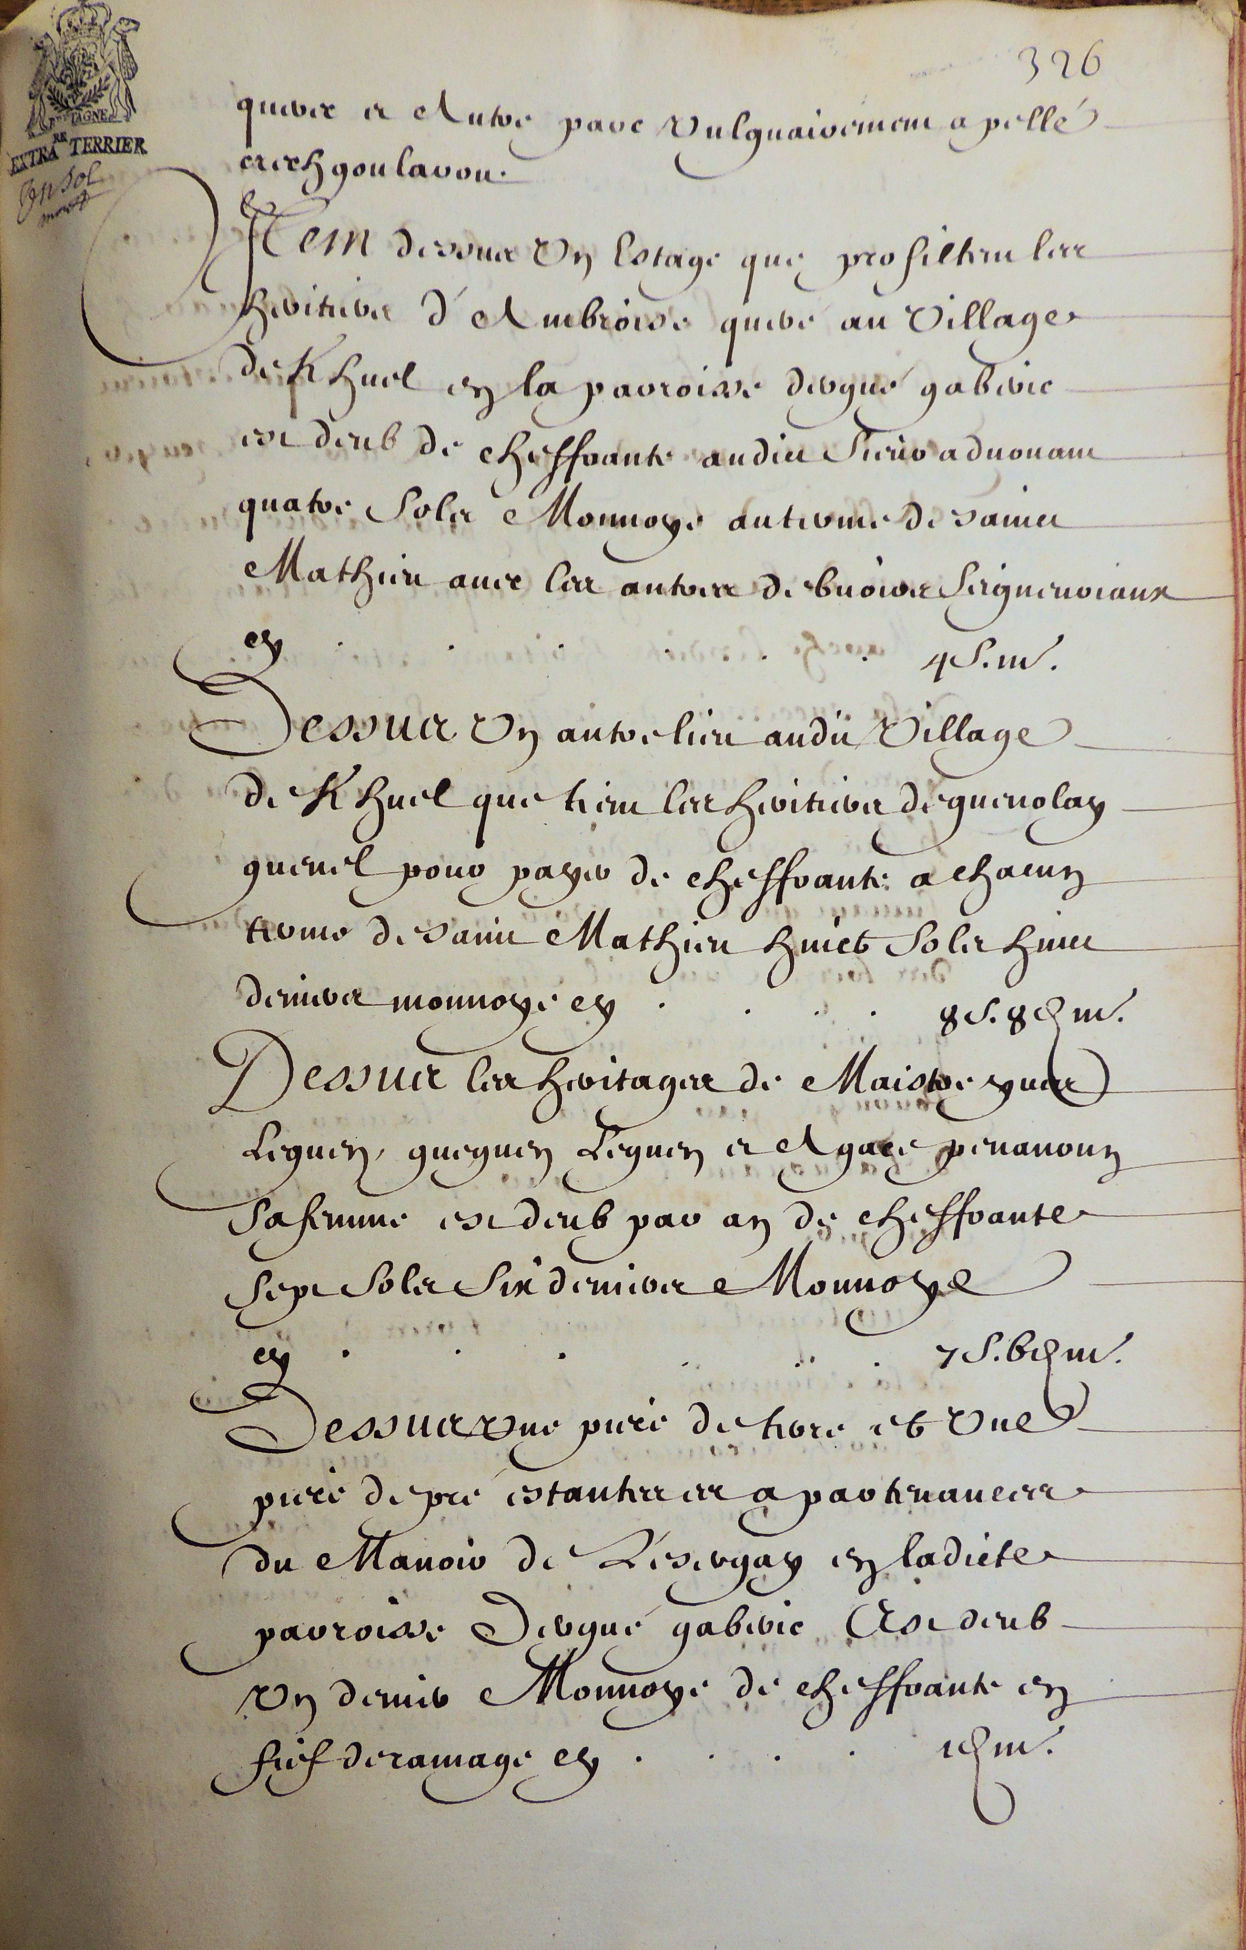 326
BRETAGNE
EXTRA.RE TERRIER
Un sol
quiver et Autre parc Vulguairement apellé
creichgoulavon.
Item dessus Un Estage que profittent les
heritiers d'Ambroise quiré au Village
de Khuel en la parroisse d'ergué gaberic
est deub de cheffrante audit Sieur advouant
quatre Sols Monnoye au terme de sainct
Mathieu avec les autres debvoirs Seigneuriaux
cy . . . . . . 4 S. m.
Dessus Un autre lieu audit Village
de Khuel que tient les heritiers de guenolay
guenel pour payer de cheffrante a chacun
terme de sainct Mathieu huict Sols huict
deniers monnoye cy . . . . 8 S. 8 d m.
Dessus les heritages de Maistre yves
Leguen, gueguen Leguen et Agace penanoun
sa femme est deub par an de cheffrante
sept Sols Six deniers Monnoye
cy . . . . . . 7 S. 6 d m.
Dessus Une piece de terre et Une
piece de pré estantes es apartenances
du Manoir de Lesergay en ladicte
parroisse Dergué gaberic Est deub
Un denier Monnoye de cheffrante en
fief de ramage cy . . . . 1 d m.